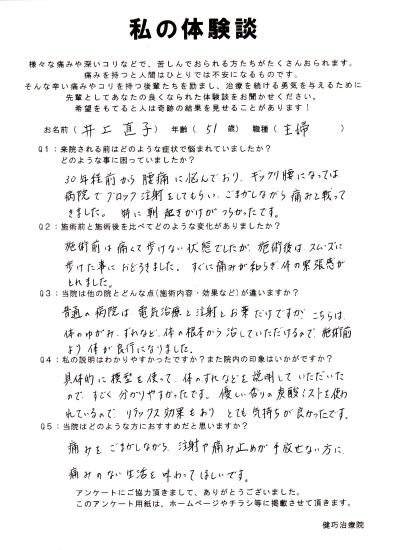 私の体験談
様々な痛みや深いコリなどで、苦しんでおられる方たちがたくさんおられます。
痛みを持つと人間はひとりでは不安になるものです。
そんな辛い痛みやコリを持つ後輩たちを励まし、治療を続ける勇気を与えるために
先輩としてあなたの良くなられた体験談をお聞かせください。
希望をもてると人は奇跡の結果を見せることがあります！
お名前（井上直子）年齢（51歳）職種（主婦）
Q1：来院される前はどのような症状で悩まれていましたか？
どのような事に困っていましたか？
30年程前から腰痛に悩んでおり、ギックリ腰になっては
病院でブロック注射をしてもらい、ごまかしながら痛みと戦って
きました。特に朝起きがけがつらかったです。
Q2：施術前と施術後を比べてどのような変化がありましたか？
施術前は痛くて歩けない状態でしたが、施術後はスムーズに
歩けた事におどろきました。すぐに痛みが和らぎ、体の緊張感が
とれました。
Q3：当院は他の院とどんな点(施術内容・効果など)が違いますか？
普通の病院は電気治療と注射とお薬だけですが、こちらは、
体のゆがみ、ずれなど、体の根本から治していただけるので、施術前
より体が良行になりました。
Q4：私の説明はわかりやすかったですか？また院内の印象はいかがですか？
具体的に模型を使って、体のずれなどを説明していただいた
ので、すごく分かりやすかったです。優しい香りの炭酸ミストを使わ
れているので、リラックス効果もあり とても気持ちが良かったです。
Q5：当院はどのような方におすすめだと思いますか？
痛みをごまかしながら、注射や痛み止めが手放せない方に、
痛みのない生活を味わってほしいです。
アンケートにご協力頂きまして、ありがとうございました。
このアンケート用紙は、ホームページやチラシ等に掲載させて頂きます。
健巧治療院